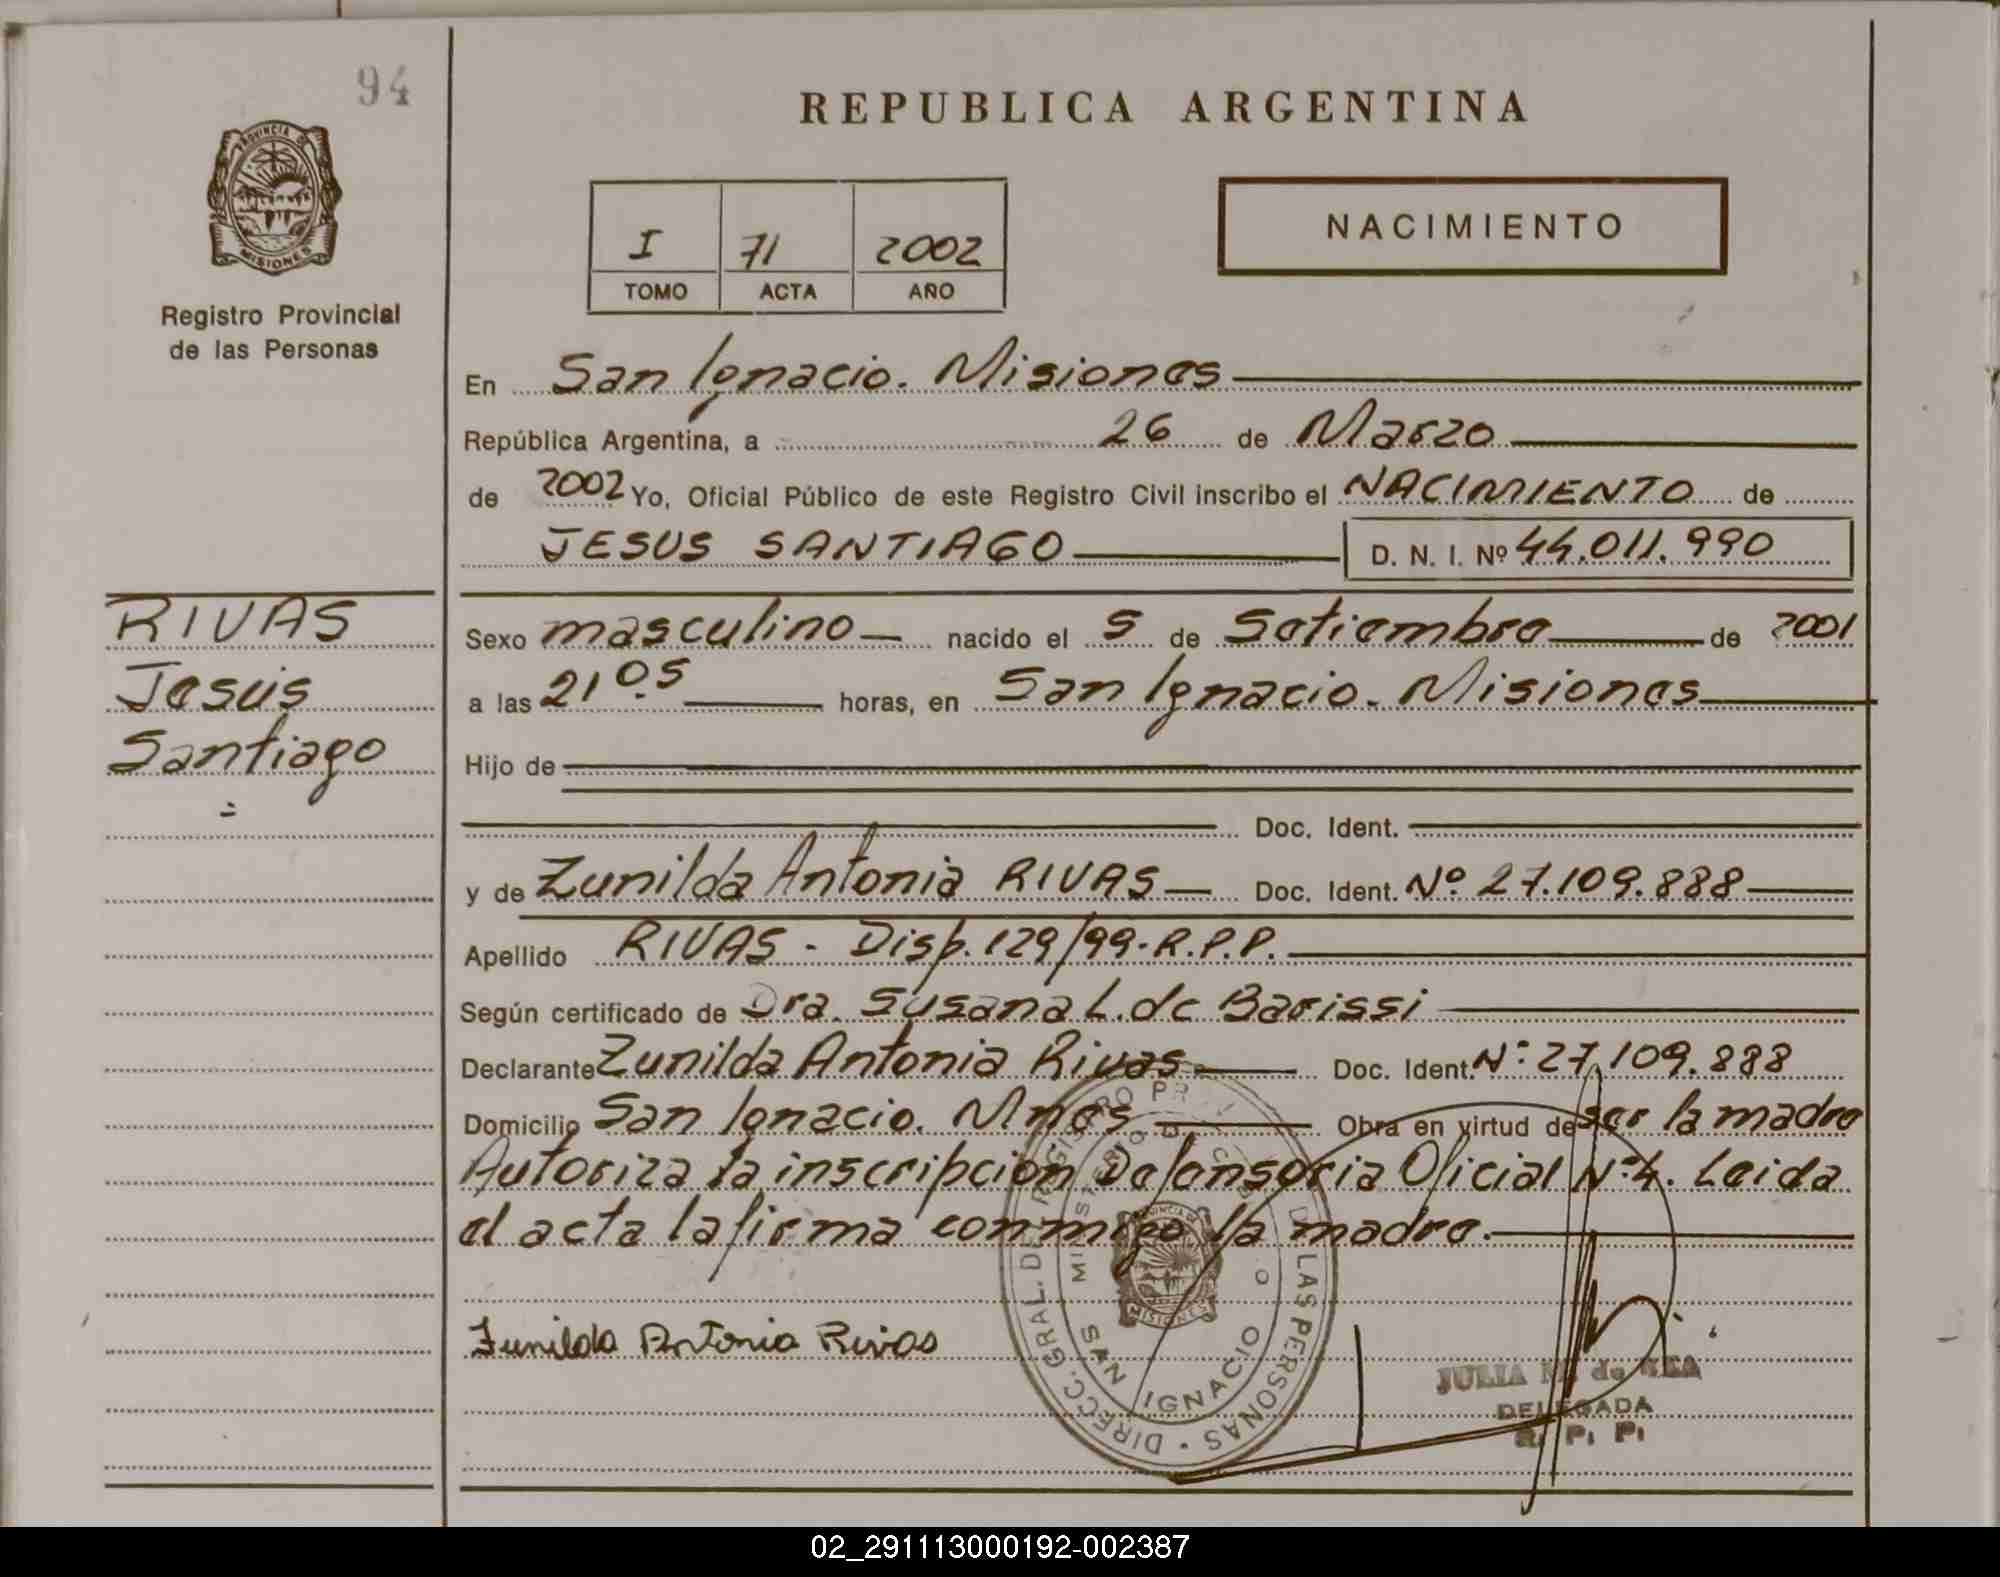 94
REPUBLICA ARGENTINA
PROVINCIA DE
MISIONES
Registro Provincial
de las Personas
I 71 2002
TOMO ACTA AÑO
NACIMIENTO
En San Ignacio. Misiones
República Argentina, a 26 de Marzo
de 2002 Yo, Oficial Público de este Registro Civil inscribo el NACIMIENTO de
JESUS SANTIAGO D. N. I. Nº 44.011.990
RIVAS
Jesús
Santiago
=
Sexo masculino nacido el 5 de Setiembre de 2001
a las 21 05 horas, en San Ignacio. Misiones
Hijo de
Doc. Ident.
y de Zunilda Antonia RIVAS Doc. Ident. Nº 27.109.888
Apellido RIVAS - Disp. 129/99. R.P.P.
Según certificado de Dra. Susana L. de Barissi
Declarante Zunilda Antonia Rivas Doc. Ident. Nº 27.109.888
Domicilio San Ignacio. Mnes Obra en virtud de ser la madre
Autoriza la inscripción Defensoria Oficial Nº 4. Leida
el acta la firma conmigo la madre.
Zunilda Antonia Rivas
DIRECC. GRAL. DEL REGISTRO PROV. DE LAS PERSONAS
SAN IGNACIO
MISIONES
JULIA de
DELEGADA
R. P. P.
02_291113000192-002387